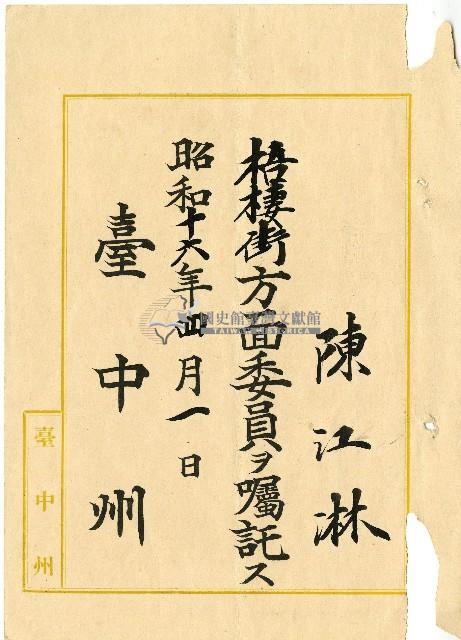 陳江淋
梧棲街方面委員ヲ囑託ス
昭和十六年四月一日
臺中州
臺中州
國史館臺灣文獻館
TAIWAN HISTORICA